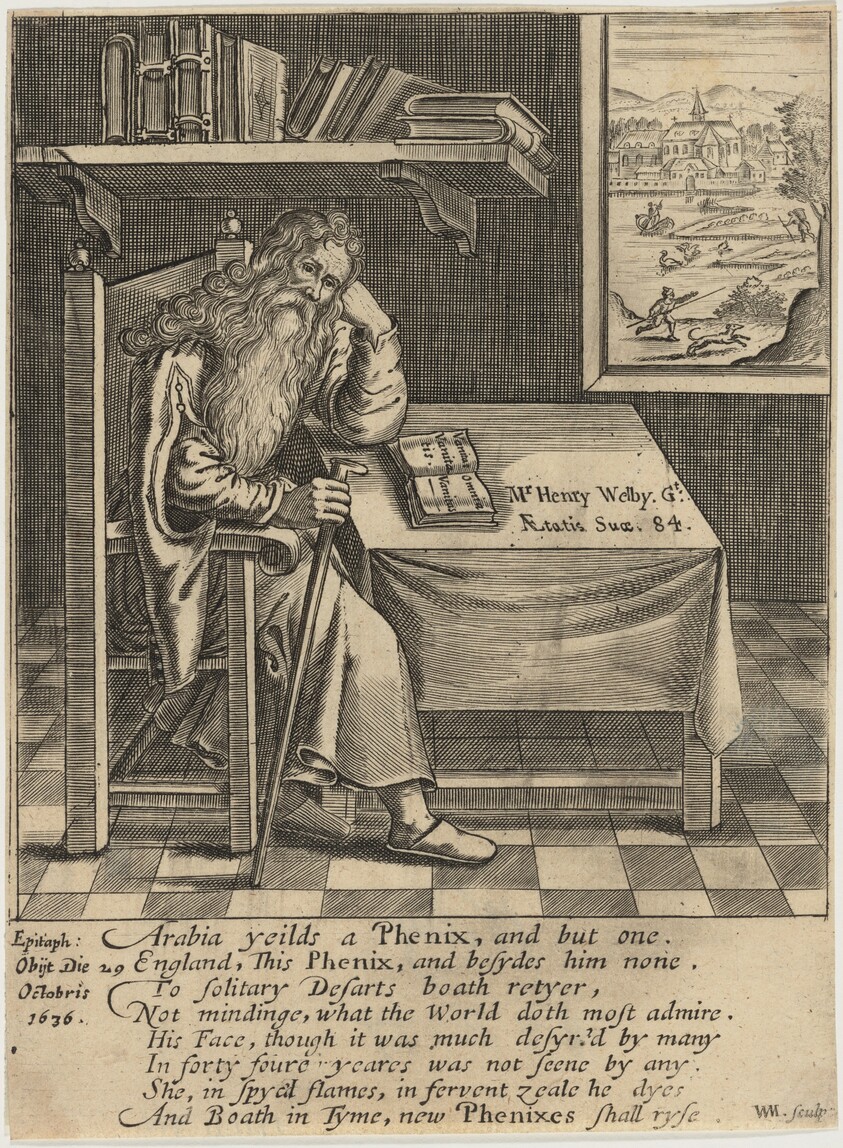 Vanitas
Vanita
tis.
Omnia
Vanitas
Mr Henry Welby. Gt.
Ætatis Suæ. 84.
Epitaph:
Obijt Die 29
Octobris
1636.
Arabia yeilds a Phenix, and but one.
England, This Phenix, and beſydes him none.
To ſolitary Deſarts boath retyer,
Not mindinge, what the World doth moſt admire.
His Face, though it was much deſyr'd by many
In forty foure yeares was not ſeene by any.
She, in ſpyc'd flames, in fervent zeale he dyes
And Boath in Tyme, new Phenixes ſhall ryſe.
WM. ſculp: